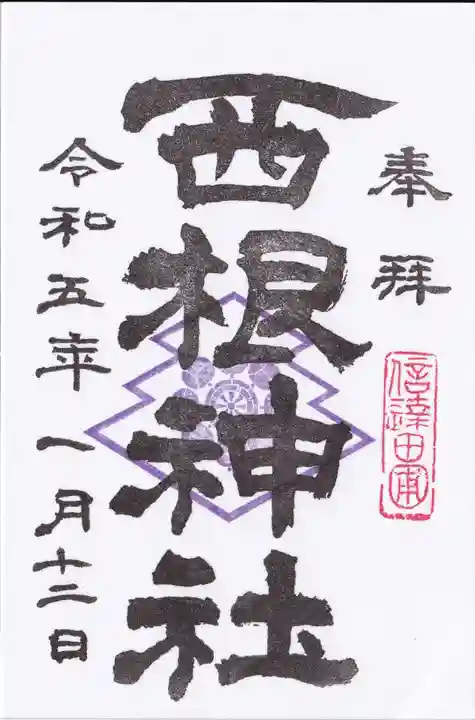 奉拝
信達田圃
西根神社
令和五年一月十二日